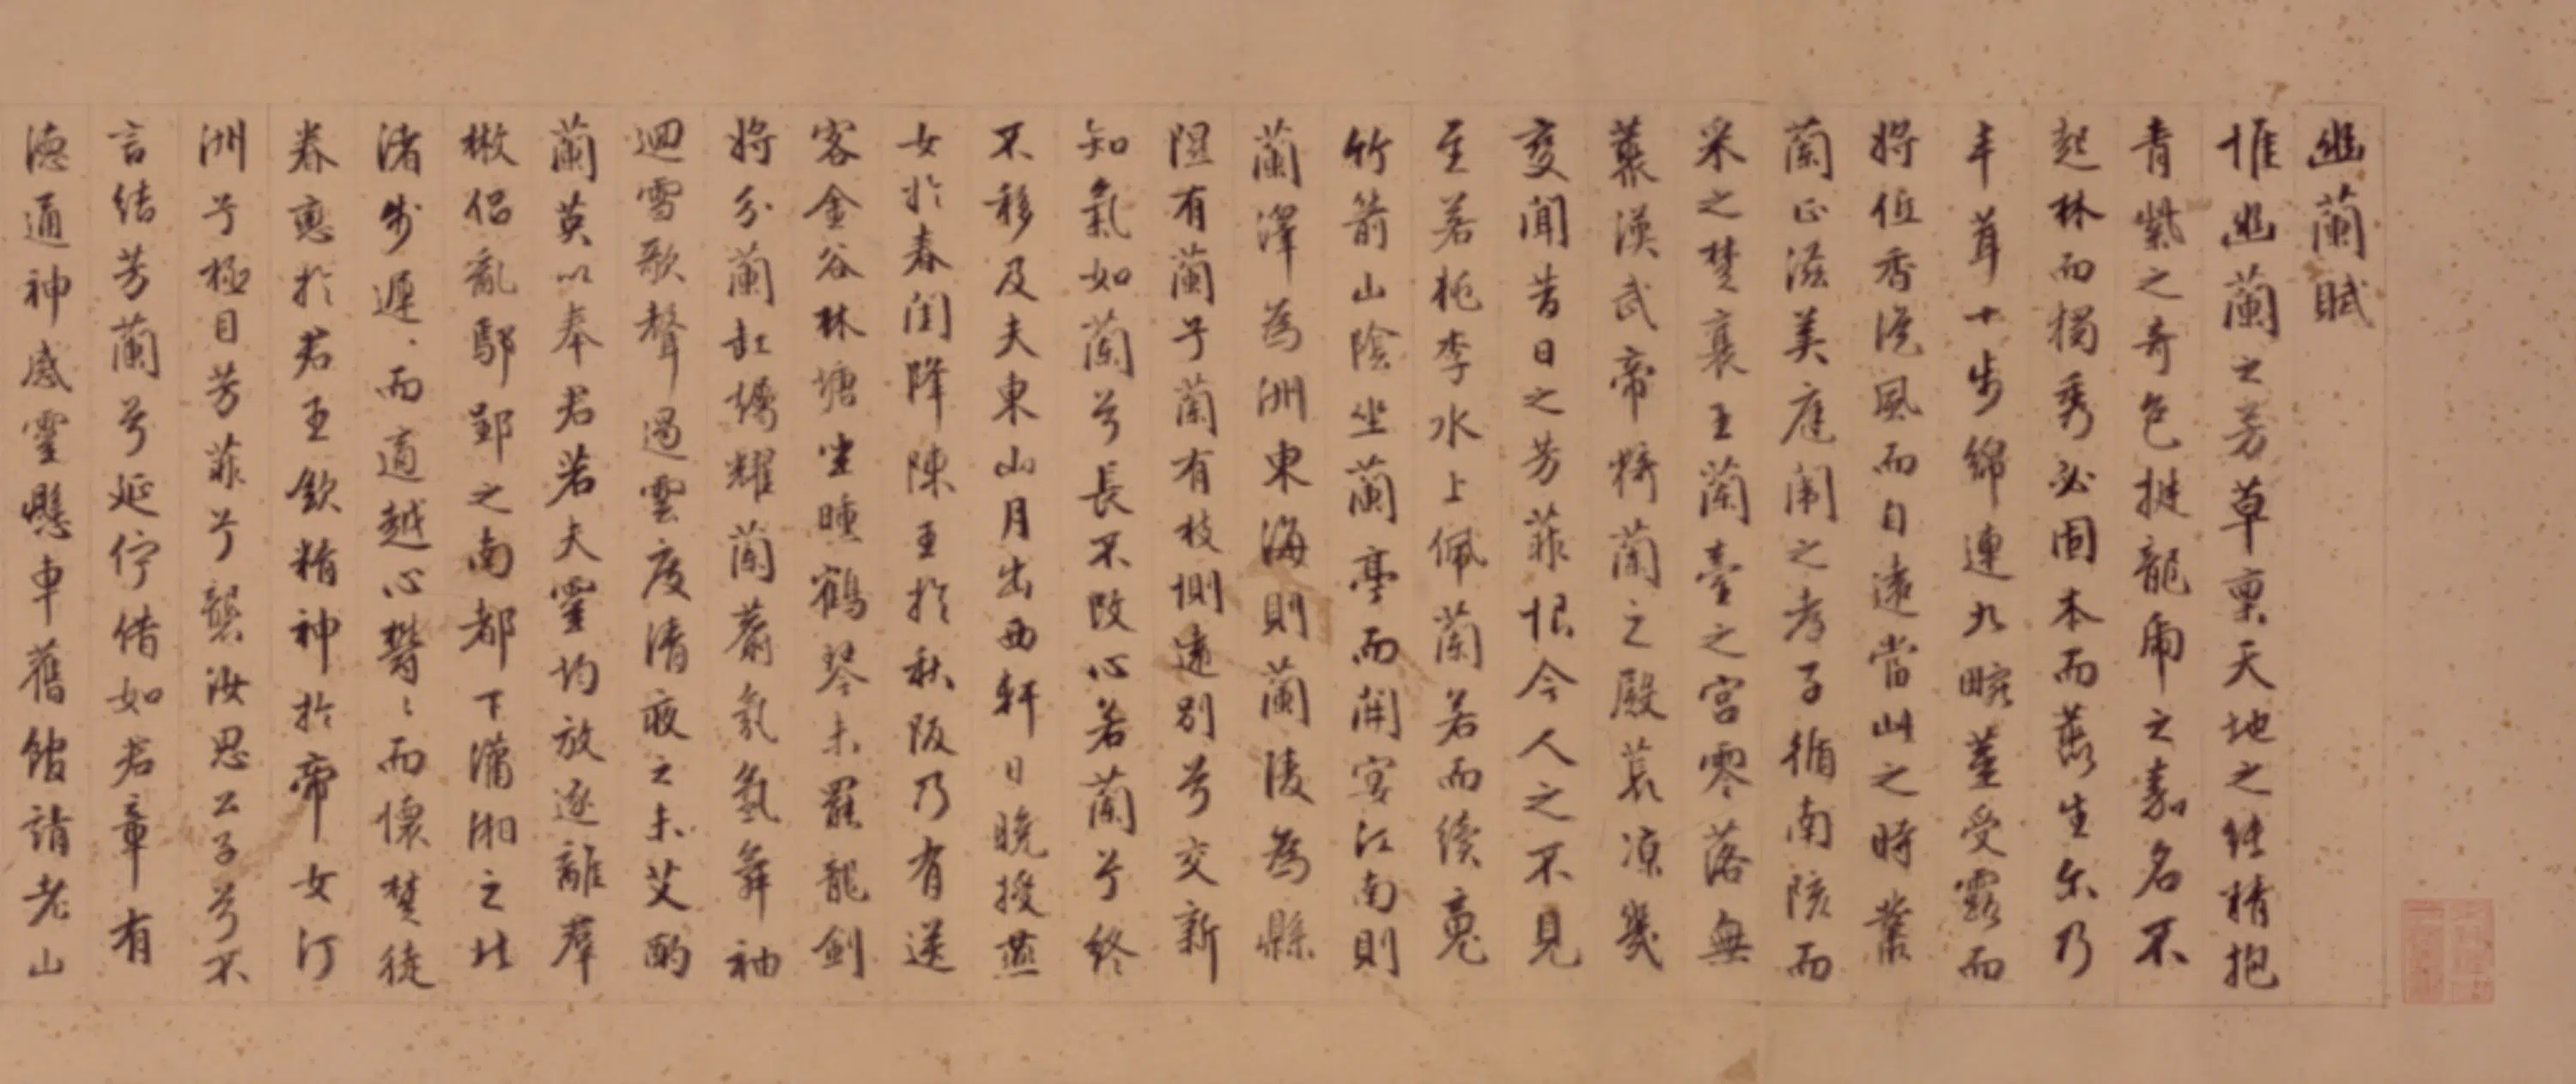 幽蘭賦
惟幽蘭之芳草禀天地之純精抱
青紫之奇色挺龍虎之嘉名不
起林而獨秀必固本而叢生尔乃
丰茸十步綿連九畹莖受露而
將低香從風而自遠當此之時叢
蘭正滋美庭闈之孝子循南陔而
采之楚襄王蘭臺之宮零落無
叢漢武帝猗蘭之殿荒凉幾
變聞昔日之芳菲恨今人之不見
至若桃李水上佩蘭若而續魂
竹箭山陰坐蘭亭而開宴江南則
蘭澤為洲東海則蘭陵為縣
隰有蘭兮蘭有枝惻遠別兮交新
知氣如蘭兮長不改心若蘭兮終
不移及夫東山月出西軒日晚授燕
女於春閨降陳王於秋阪乃有送
客金谷林塘坐曛鶴琴未罷龍劍
將分蘭釭燭耀蘭麝氛氳舞袖
迴雪歌聲遏雲度清夜之未艾酌
蘭英以奉君若夫靈均放逐離羣
散侶亂鄢郢之南都下瀟湘之北
渚步遲、而適越心鬱〻而懷楚徒
眷戀於君王歛精神於帝女汀
洲兮極目芳菲兮襲汝思公子兮不
言結芳蘭兮延佇借如君章有
德通神感靈懸車舊館請老山